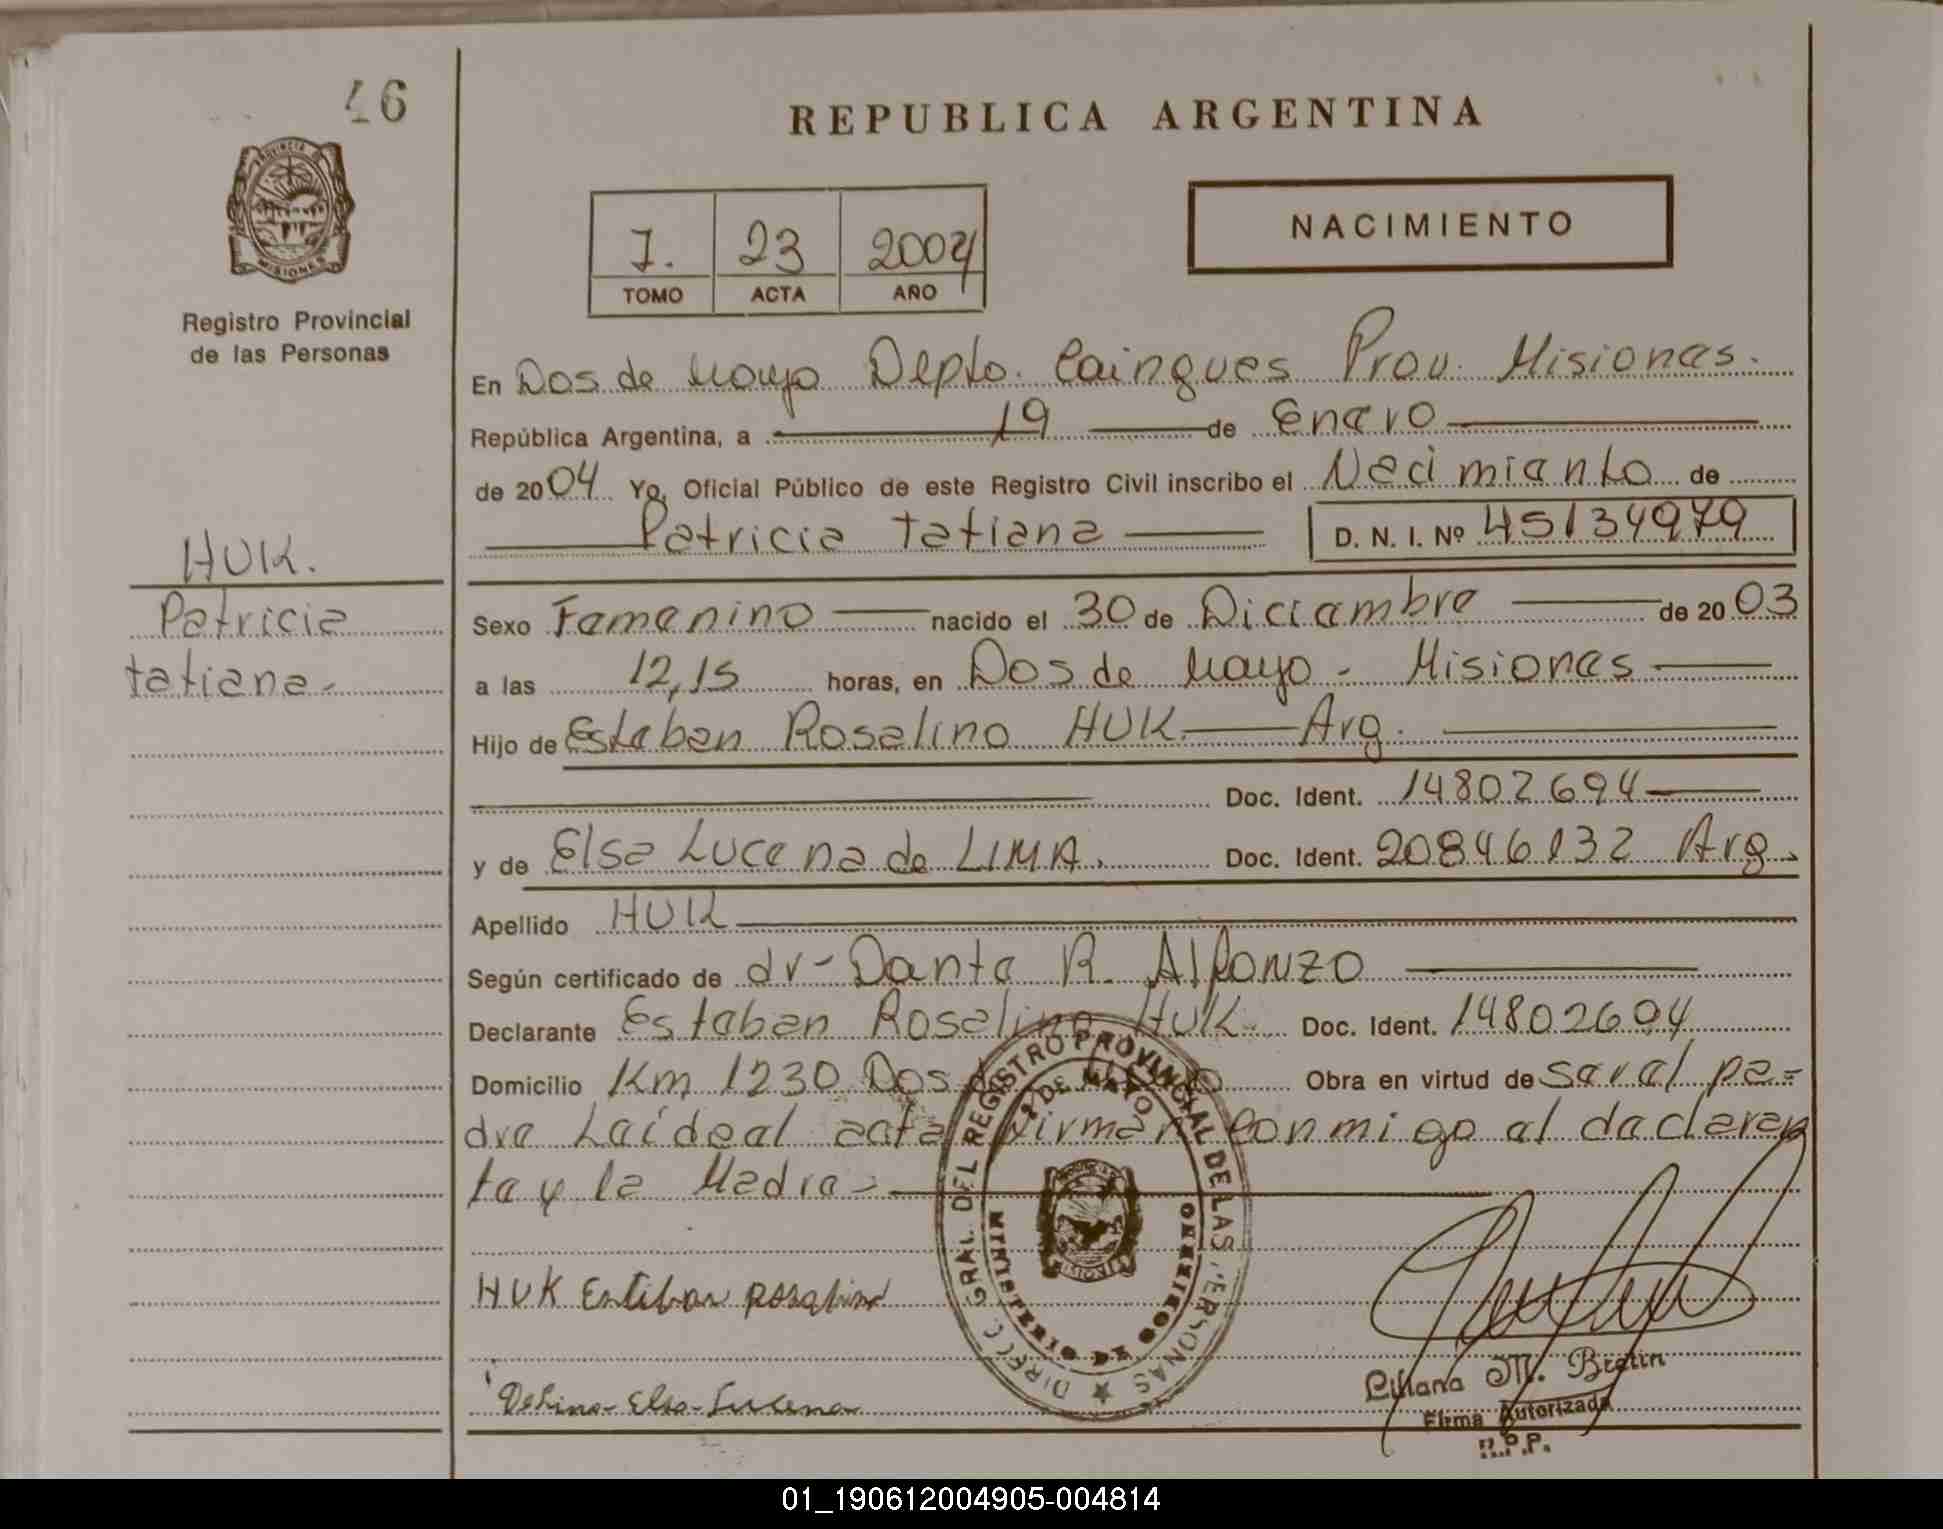 46
REPUBLICA ARGENTINA
PROVINCIA DE
MISIONES
Registro Provincial
de las Personas
1. 23 2004
TOMO ACTA AÑO
NACIMIENTO
En Dos de Mayo Depto. Caingues Prov. Misiones.
República Argentina, a 19 de Enero
de 2004 Yo, Oficial Público de este Registro Civil inscribo el Nacimiento de
Patricia Tatiana D. N. I. Nº 45134979
HUK.
Patricia
tatiana.-
Sexo Femenino nacido el 30 de Diciembre de 2003
a las 12,15 horas, en Dos de Mayo - Misiones
Hijo de Esteban Rosalino HUK Arg.
Doc. Ident. 14802694
y de Elsa Lucena de LIMA. Doc. Ident. 20846132 Arg.
Apellido HUK
Según certificado de dr- Dante R. Alfonzo
Declarante Esteban Rosalino HUK. Doc. Ident. 14802694
Domicilio Km 1230 Dos de Mayo Obra en virtud de ser el pa=
dre Leídael acta firman conmigo el declaran
te y la Madre.-
DIREC. GRAL. DEL REGISTRO PROVINCIAL DE LAS PERSONAS
2 DE MAYO
MINISTERIO DE GOBIERNO
HUK Esteban Rosalino
Delima Elsa Lucena
Liliana M. Bratin
Firma Autorizada
R.P.P.
01_190612004905-004814